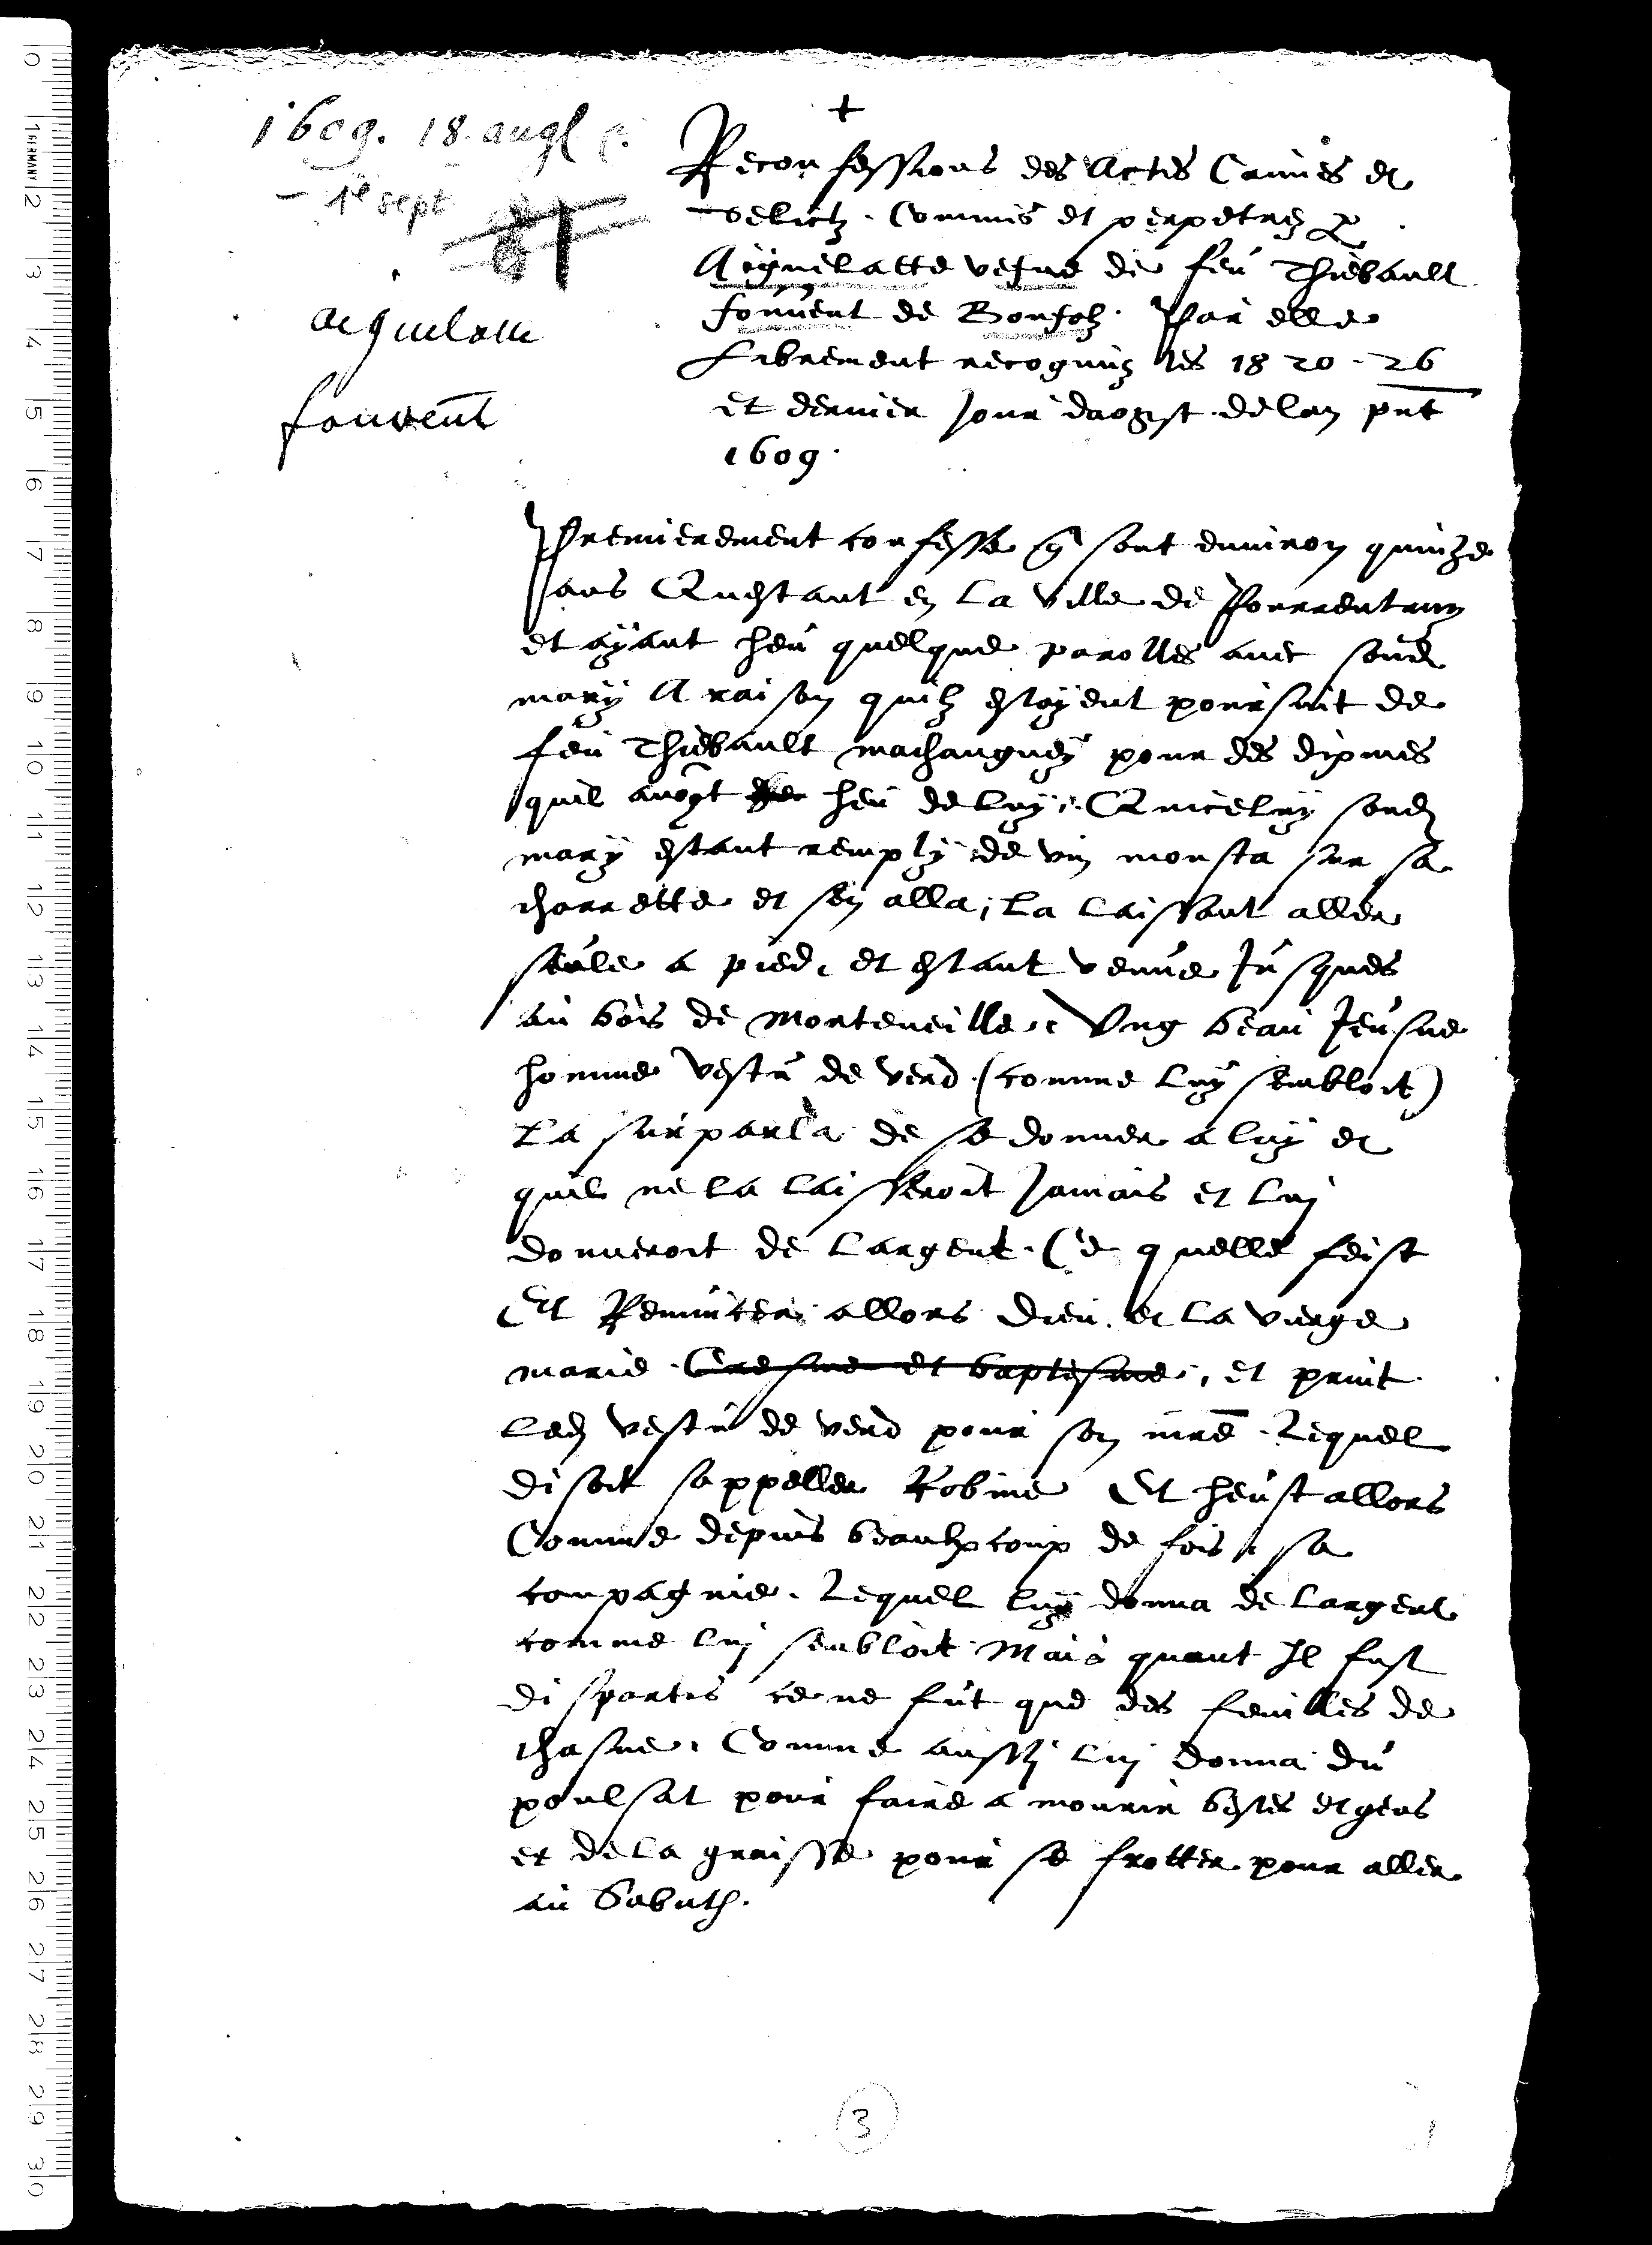 1609. 18. augst
- 1e sept
81
aiguelatte
fouvent
+
Confessions des Actes Crimes et
delictz. Commis et perpetrez p
Aiguelatte vefue de feu Thiebault
fouuent de Bonfolz. Par elle
Librement recognuz les 18 20 . 26
et dernier Jour daogst de lan pnt
1609.
Premierement confesse q sont enuiron quinze
ans Questant en la ville de Pourrentruy
et ayant heu quelque parolles auec sond
mary A raison quilz estoyent poursuit de
feu Thiebault machanguey pour des dixmes
quil auoyt heu de luy, Quiceluy sond
mary estant remply de vin monsta sur sa
charrette et sen alla, la laissant aller
seule a pied, et estant venue Jusques
au bois de Monteneille, Ung beau Jeusne
homme vestu de verd (comme luy sembloit)
La surparla de se donner a luy et
quil ne la laisseroit Jamais et luy
donneroit de largent. Ce quelle feist
Et Renuncea allors Dieu et la vierge
marie Cresme et baptesme, et print
led vestu de verd pour son mre. Lequel
disoit sappeller Robine Et heust allors
Comme depuis beaulxcoup de fois sa
compagnie. Lequel luy donna de largent
comme luy sembloit Mais quant Il fust
dispartis ce ne fut que des feuilles de
chasne. Comme aussy luy donna du
poulsat pour faire a mourir bestes et gens
et de la graisse pour se frotter pour aller
au Sabath.
3
1